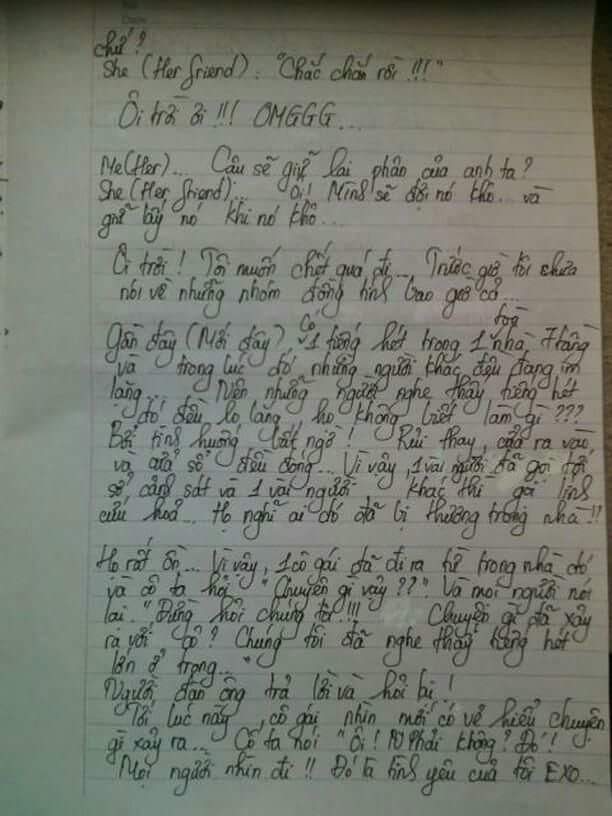 chứ?
She (Her friend): "Chắc chắn rồi!!!"
Ôi trời ơi!!! OMGGG...
Me(Her)... Cậu sẽ giữ lại phân của anh ta?
She (Her friend):... Ôi! Mình sẽ đợi nó khô... và
giữ lấy nó khi nó khô...
Ôi trời! Tôi muốn chết quá đi... Trước giờ tôi chưa
nói về những nhóm đồng tính bao giờ cả...
Gần đây (Mới đây), Có 1 tiếng hét trong 1 tòa nhà 7 tầng
và trong lúc đó, những người khác đều đang im
lặng... Nên những người nghe thấy tiếng hét
đó đều lo lắng, họ không biết làm gì???
Bởi tình huống bất ngờ! Rủi thay, cửa ra vào
và cửa sổ đều đóng... Vì vậy, 1 vài người đã gọi tới
sở cảnh sát và 1 vài người khác thì gọi lính
cứu hoả... Họ nghĩ ai đó đã bị thương trong nhà!!
Họ rất ồn... Vì vậy, 1 cô gái đã đi ra từ trong nhà đó
và cô ta hỏi, "Chuyện gì vậy??". Và mọi người nói
lại. "Đừng hỏi chúng tôi!!! Chuyện gì đã xảy
ra với cô? Chúng tôi đã nghe thấy tiếng hét
lớn ở trong..."
Người đàn ông trả lời và hỏi lại!
Tới lúc này, cô gái nhìn mới có vẻ hiểu chuyện
gì xảy ra... Cô ta nói "Ôi! Phải không? Đó!
Mọi người nhìn đi!! Đó là tình yêu của tôi EXO...